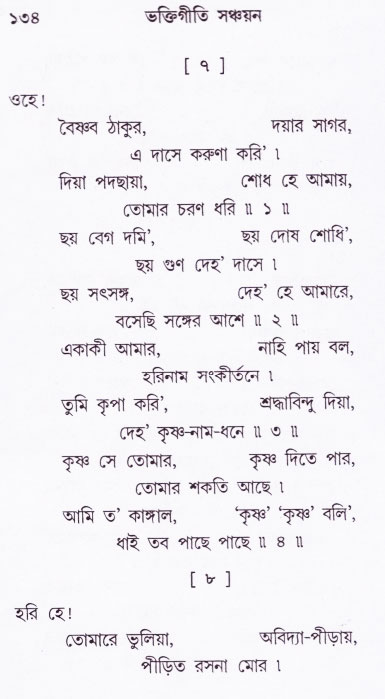 ১৩৪ ভক্তিগীতি সঞ্চয়ন
[ ৭ ]
ওহে!
বৈষ্ণব ঠাকুর, দয়ার সাগর,
এ দাসে করুণা করি’ ।
দিয়া পদছায়া, শোধ হে আমায়,
তোমার চরণ ধরি ॥ ১ ॥
ছয় বেগ দমি’, ছয় দোষ শোধি’,
ছয় গুণ দেহ’ দাসে ।
ছয় সৎসঙ্গ, দেহ’ হে আমারে,
বসেছি সঙ্গের আশে ॥ ২ ॥
একাকী আমার, নাহি পায় বল,
হরিনাম সংকীর্তনে ।
তুমি কৃপা করি’, শ্রদ্ধাবিন্দু দিয়া,
দেহ’ কৃষ্ণ-নাম-ধনে ॥ ৩ ॥
কৃষ্ণ সে তোমার, কৃষ্ণ দিতে পার,
তোমার শকতি আছে ।
আমি ত’ কাঙ্গাল, ‘কৃষ্ণ’ ‘কৃষ্ণ’ বলি’,
ধাই তব পাছে পাছে ॥ ৪ ॥
[ ৮ ]
হরি হে!
তোমারে ভুলিয়া, অবিদ্যা-পীড়ায়,
পীড়িত রসনা মোর ।